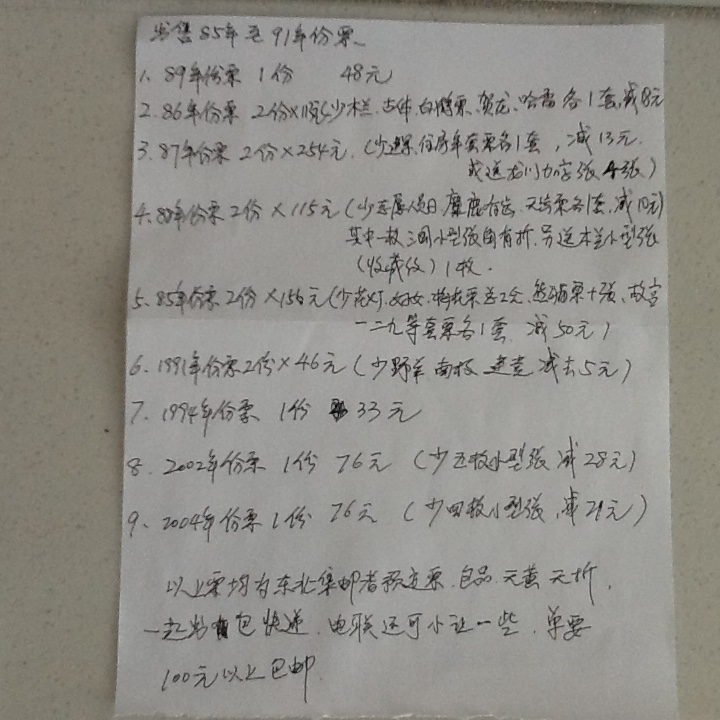 出售85年至91年份票
1、89年份票 1份 48元
2.86年份票 2份×118元(少木兰、古体、白鹤票、贺龙、哈雷各1套,减8元
3.87年份票 2份×254元.(少过桥、住房年套票各1套,减13元.
或送龙川力字张4张)
4.88年份票2份×115元(少 麋鹿有齿、天 票各1套,减10元)
其中一枚三国小型张角有折,另送木兰小型张
(收藏级)1枚.
5.85年份票2份×156元(少花灯、妇女、梅花票送2全、熊猫票+张、故宫
一二九等套票各1套 减50元)
6.1991年份票2份×46元(少野羊 南极 建党 减去5元)
7、1994年份票 1份 33元
8.2002年份票 1份 76元 (少五枚小型张 减28元)
9、2004年份票1份 76元 (少四枚小型张,减21元)
以上票均为东北集邮者预定票.包品.无黄无折,
一起出包快递.电联还可小让一些.单要
100元以上包邮.